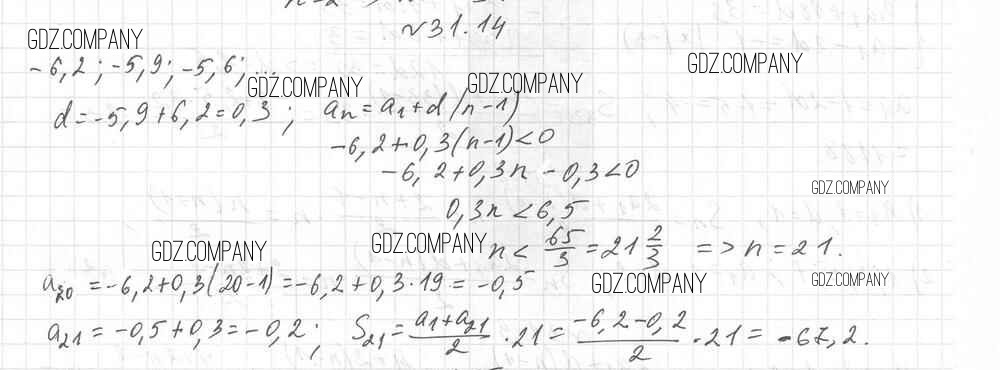 №31.14
GDZ.COMPANY
-6,2; -5,9; -5,6; ...
GDZ.COMPANY GDZ.COMPANY GDZ.COMPANY
d = -5,9 + 6,2 = 0,3 ; an = a1 + d(n-1)
-6,2 + 0,3(n-1) < 0
-6,2 + 0,3n - 0,3 < 0
GDZ.COMPANY
0,3n < 6,5
GDZ.COMPANY GDZ.COMPANY n < 65/3 = 21 2/3 => n = 21.
a20 = -6,2 + 0,3(20-1) = -6,2 + 0,3 · 19 = -0,5
GDZ.COMPANY GDZ.COMPANY
a21 = -0,5 + 0,3 = -0,2 ; S21 = (a1 + a21)/2 · 21 = (-6,2 - 0,2)/2 · 21 = -67,2.